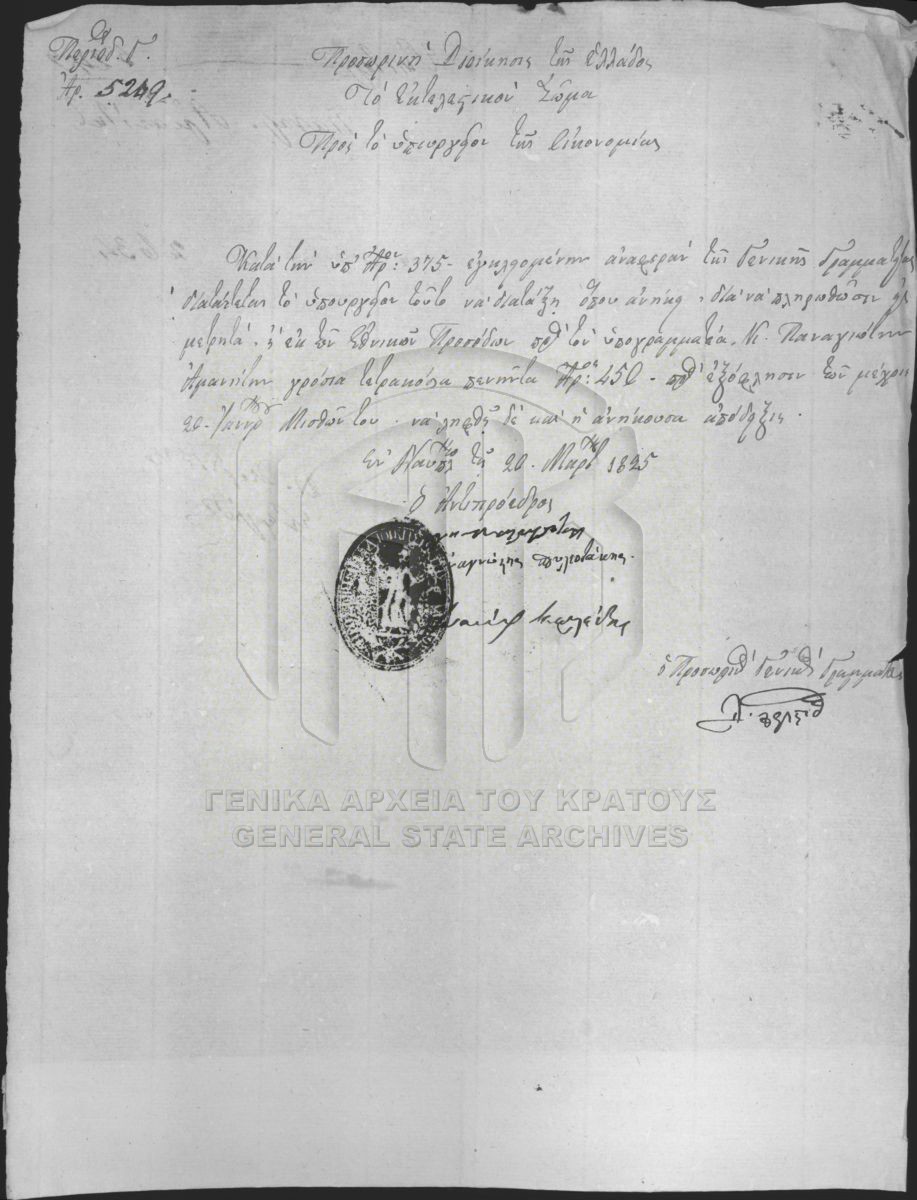 Περίοδ. Γ.
Ἀρ. 5249.
Προσωρινὴ Διοίκησις τῆς Ἑλλάδος
Τὸ Ἐκτελεστικὸν Σῶμα
Πρὸς τὸ ὑπουργεῖον τῆς Οἰκονομίας
Κατὰ τὴν ὑπ' Ἀρ: 375 - ἐγκλειομένην ἀναφορὰν τῆς Γενικῆς Γραμματείας
διατάττεται τὸ ὑπουργεῖον τοῦτο νὰ διατάξῃ ὅπου ἀνήκει, διὰ νὰ πληρωθῶσιν εἰς
μετρητὰ, ἐκ τῶν Ἐθνικῶν Προσόδων πρὸς τὸν ὑπογραμματέα, Κ. Παναγιώτην
γρόσια τετρακόσια πενῆντα Ἀρ: 450 - πρὸς ἐξόφλησιν τῶν μέχρι
20 - Ἰαννρ Μισθῶν του. νὰ ληφθῇ δὲ καὶ ἡ ἀνήκουσα ἀπόδειξις.
Ἐν Ναυπλ τῇ 20. Μαρτ 1825
Ὁ Ἀντιπρόεδρος
ὁ Προσωρ Γενικὸς Γραμματεὺς
ΓΕΝΙΚΑ ΑΡΧΕΙΑ ΤΟΥ ΚΡΑΤΟΥΣ
GENERAL STATE ARCHIVES